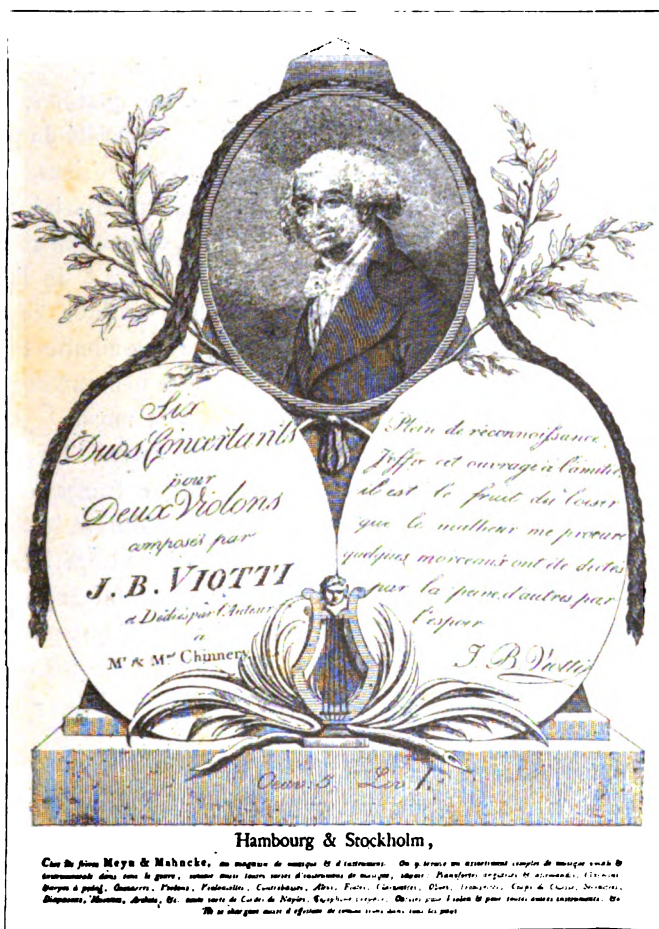 Six
Duos Concertants
pour
Deux Violons
composés par
J. B. VIOTTI
et Dédiés par l'Auteur
a
Mr & Mme Chinnery
Plein de reconnoissance,
J'offre cet ouvrage à l'amitié,
il est le fruit du loisir
que le malheur me procure
quelques morceaux ont été dictés
par la peine, d'autres par
l'espoir
J. B. Viotti
Oeuv: 5 Liv 1.
Hambourg & Stockholm,
Chez les frères Meyn & Mahncke, au magasin de musique & d'instrumens. On y trouve un assortiment complet de musique vocale &
instrumentale dans tout le genre, comme aussi toutes sortes d'instrumens de musique, savoir: Pianofortes anglaises & allemandes,
Harpes à pédal, Guitarres, Violons, Violoncelles, Contrebasses, Altos, Flutes, Clarinettes, Obois, Trompettes, Corps de Chasse,
Diapasons, Archets, &c. toute sorte de Cordes de Naples, pour Violon & pour toutes autres instrumens, &c.
Ils se chargent aussi d'effectuer de dans tous les pays